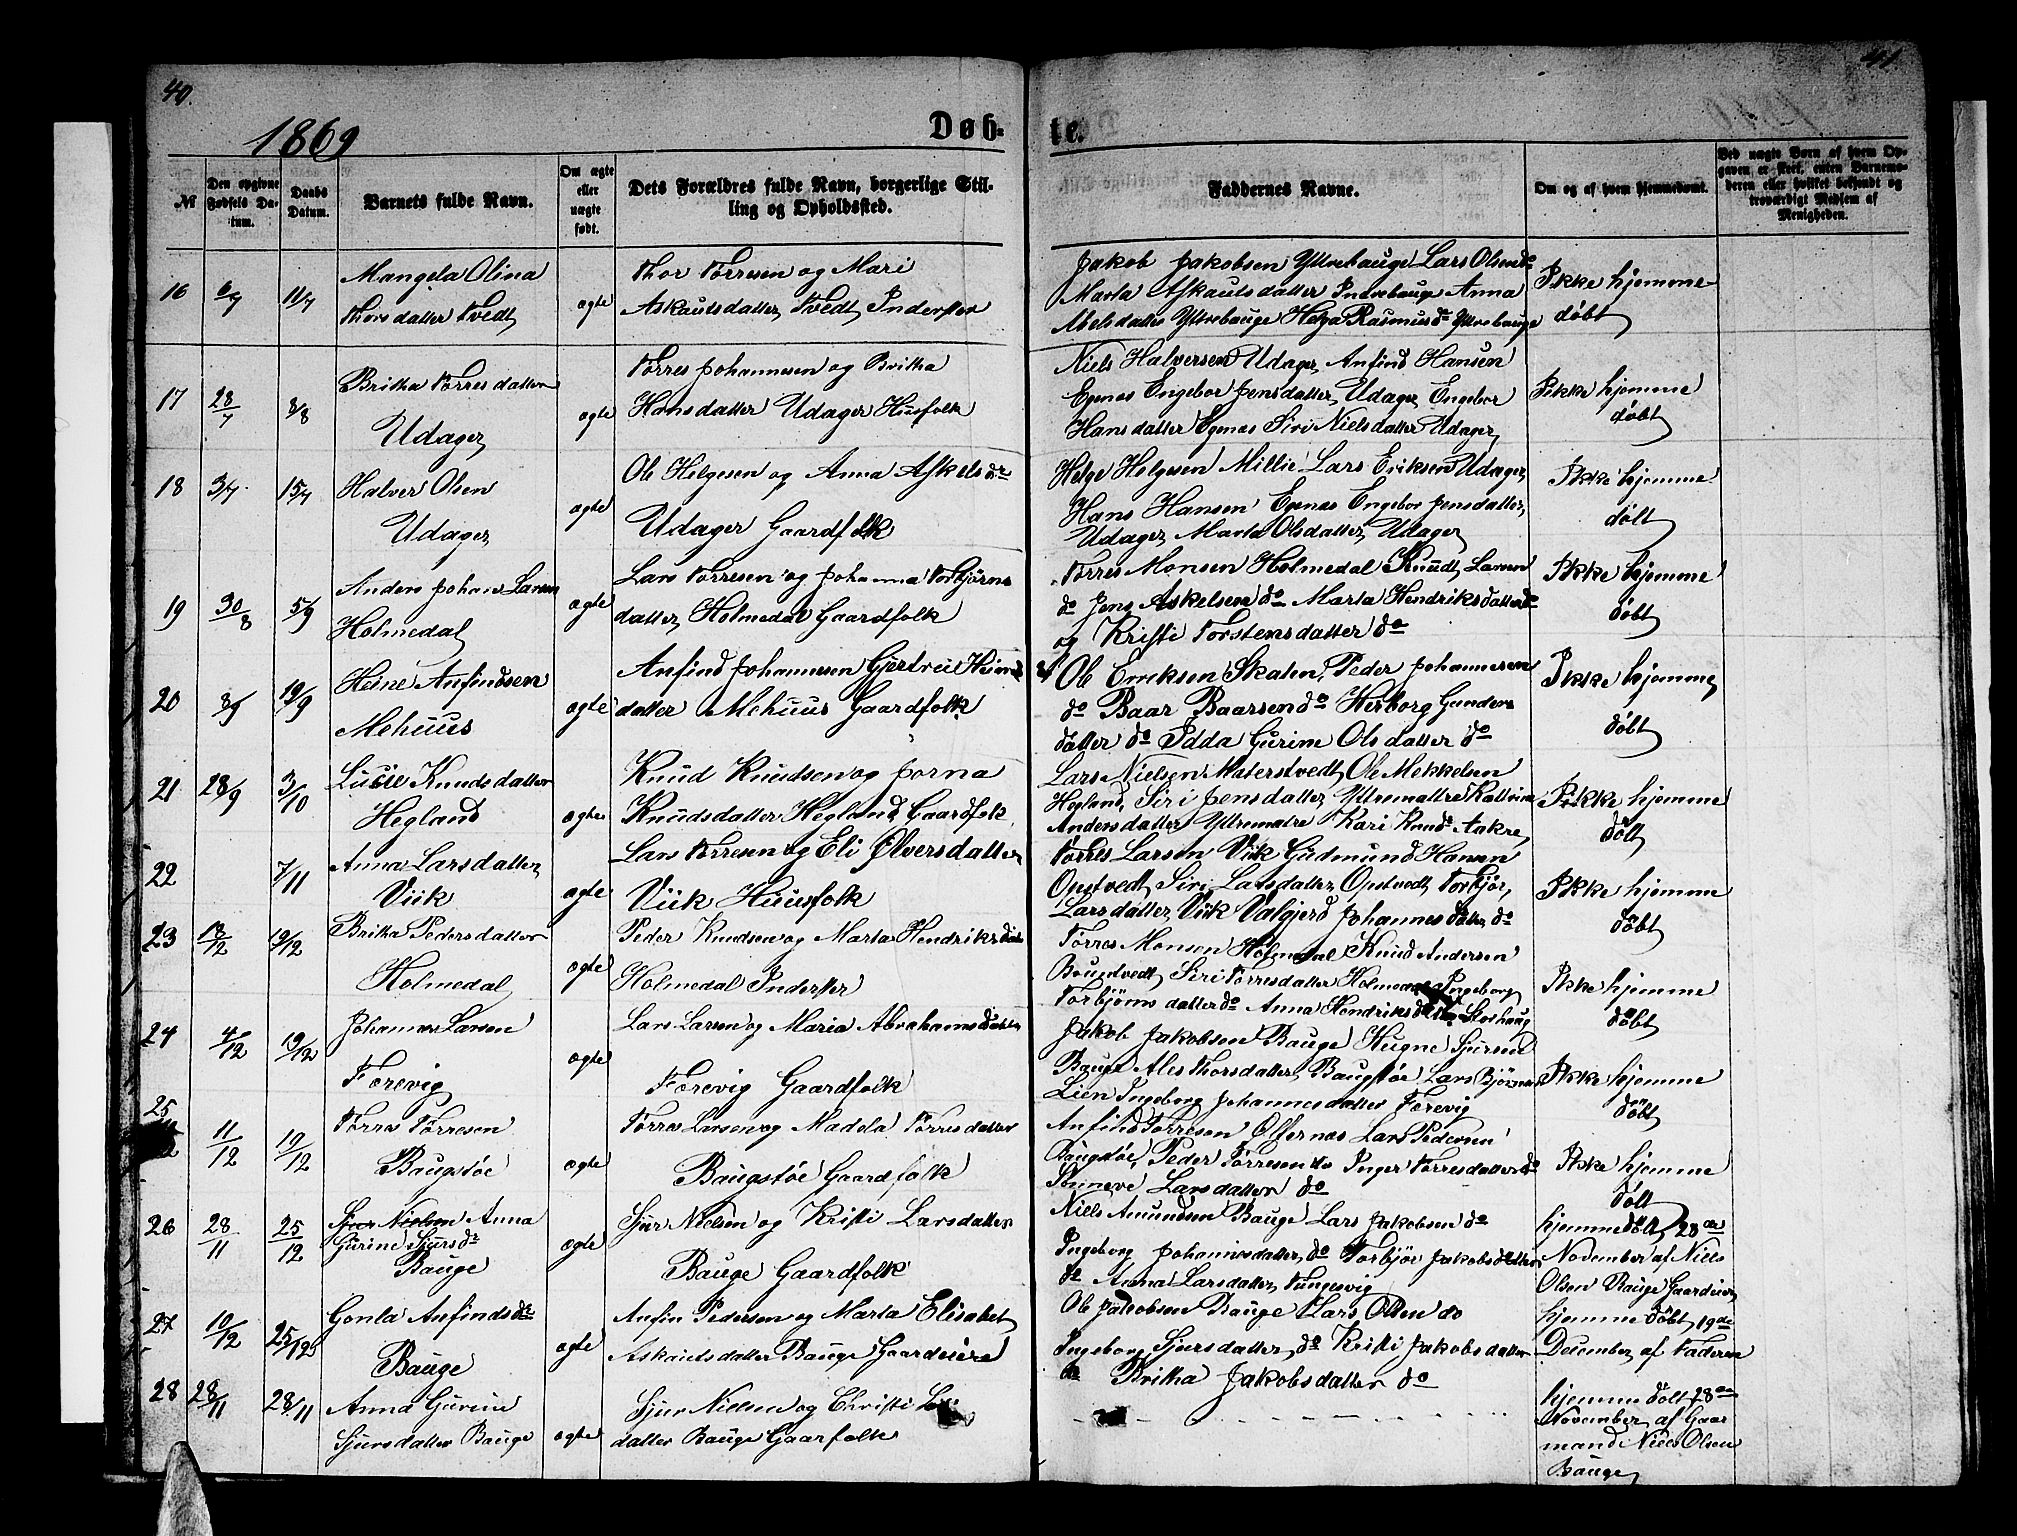 40.
41
1869
Døb-
te.
№
Den opgivne Fødsels Datum.
Daabs Datum.
Barnets fulde Navn.
Om ægte eller uægte født.
Dets Forældres fulde Navn, borgerlige Stilling og Opholdssted.
Faddernes Navne.
Om og af hvem hjemmedøbt.
Ved uægte Børn af hvem Opgaven er skeet, enten Barnemoderen eller hvilket bekjendt og troværdigt Medlem af Menigheden.
16 6/7 11/7 Mangela Olina
Thorsdatter Tvedt
ægte
Thor Tørresen og Mari
Askautsdatter Tvedt Inderster
Jakob Jakobsen Yttrebauge Lars Olsen do
Marta Askautsdatter Indrebauge Anna
Abelsdatter Yttrebauge Helga Rasmusdr Yttrebauge
Ikke hjemme
døbt
17 28/7 8/8 Britha Tørresdatter
Udager
ægte
Tørres Johannesen og Britha
Hansdatter Udager Husfolk
Niels Halversen Udager Anfind Hansen
Egenæs Engebor Jensdatter Udager Engebor
Hansdatter Egenæs Siri Nielsdatter Udager
Ikke hjemme
døbt
18 3/7 15/7 Halver Olsen
Udager
ægte
Ole Helgesen og Anna Askelsdr
Udager Gaardfolk
Helge Helgesen Millie Lars Eriksen Udager
Hans Hansen Egenæs Engebor Jensdatter
Udager Marta Olsdatter Udager
Ikke hjemme
døbt
19 30/8 5/9 Anders Johan Larsen
Holmedal
ægte
Lars Tørresen og Johanna Torbjørns
datter Holmedal Gaardfolk
Tørres Monsen Holmedal Knudt Larsen
do Jens Askelsen do Marta Hendriksdatter do
og Kristi Torstensdatter do
Ikke hjemme
døbt
20 8/9 19/9 Heine Anfindsen
Mehuus
ægte
Anfind Johannesen Gjertrui Heines
datter Mehuus Gaardfolk
Ole Erriksen Skalen Peder Johannesen
do Baar Baarsen do Herborg Gunders
datter do Idda Gurine Olsdatter do
Ikke hjemme
døbt
21 28/9 3/10 Lusie Knudsdatter
Hegland
ægte
Knud Knudsen og Jorna
Knudsdatter Hegland Gaardfok
Lars Nielsen Materstvedt Ole Mekkelsen
Hegland Siri Jensdatter Yttrematre Kattrina
Andersdatter Yttrematre Kari Knudr Aakre
Ikke hjemme
døbt
22 7/11 Anna Larsdatter
Viik
ægte
Lars Tørresen og Eli Ølversdatter
Viik Huusfolk
Tørres Larsen Viik Gudmund Hansen
Opstvedt Siri Larsdatter Opstvedt Torbjør
Larsdatter Viik Valgjerd Johannesdatter do
Ikke hjemme
døbt
23 13/12 19/12 Brita Pedersdatter
Holmedal
ægte
Peder Knudsen og Marta Hendriksdatter
Holmedal Inderster
Tørres Monsen Holmedal Knud Andersen
Bountvedt Siri Tørresdatter Holmedal Ingeborg
Torbjørnsdatter do Anna Hendriksdatter Storhaug
Ikke hjemme
døbt
24 4/12 19/12 Johannes Larsen
Førevig
ægte
Lars Larsen og Maria Abrahamsdatter
Førevig Gaardfolk
Jakob Jakobsen Bauge Hugne Sjursen
Bauge Ales Thorsdatter Baugstøe Lars Bjørnsen
Lien Ingeborg Johannesdatter Førevig
Ikke hjemme
døbt
25 11/12 19/12 Tørres Tørresen
Baugstøe
ægte
Tørres Larsen og Madela Tørresdatter
Baugstøe Gaardfolk
Anfind Tørresen Ølfernæs Lars Pedersen
Baugstøe Peder Tørresen do Inger Tørresdatter do
Sønneve Larsdatter do
Ikke hjemme
døbt
26 28/11 25/12 Sjur Nielsen Anna
Gurine Sjursdr
Bauge
ægte
Sjur Nielsen og Kristi Larsdatter
Bauge Gaardfolk
Niels Amundsen Bauge Lars Jakobsen do
Ingeborg Johannesdatter do Torbjør Jakobsdatter
do Anna Larsdatter Tungesvig
hjemmedøbt 28de
November af Niels
Olsen Bauge Gaardeier
27 10/12 25/12 Gonla Anfindsdr
Bauge
ægte
Anfin Pedersen og Marta Elisabet
Askautsdatter Bauge Gaardeiere
Ole Jakobsen Bauge Lars Olsen do
Ingeborg Sjursdatter do Kristi Jakobsdatter
do Britha Jakobsdatter do
hjemme døbt 19de
December af Faderen
28 28/11 28/11 Anna Gurine
Sjursdatter Bauge
ægte
Sjur Nielsen og Christi
datter Bauge Gaarfolk
hjemme døbt 28de
November af Gaar
mand Niels Olsen
Bauge